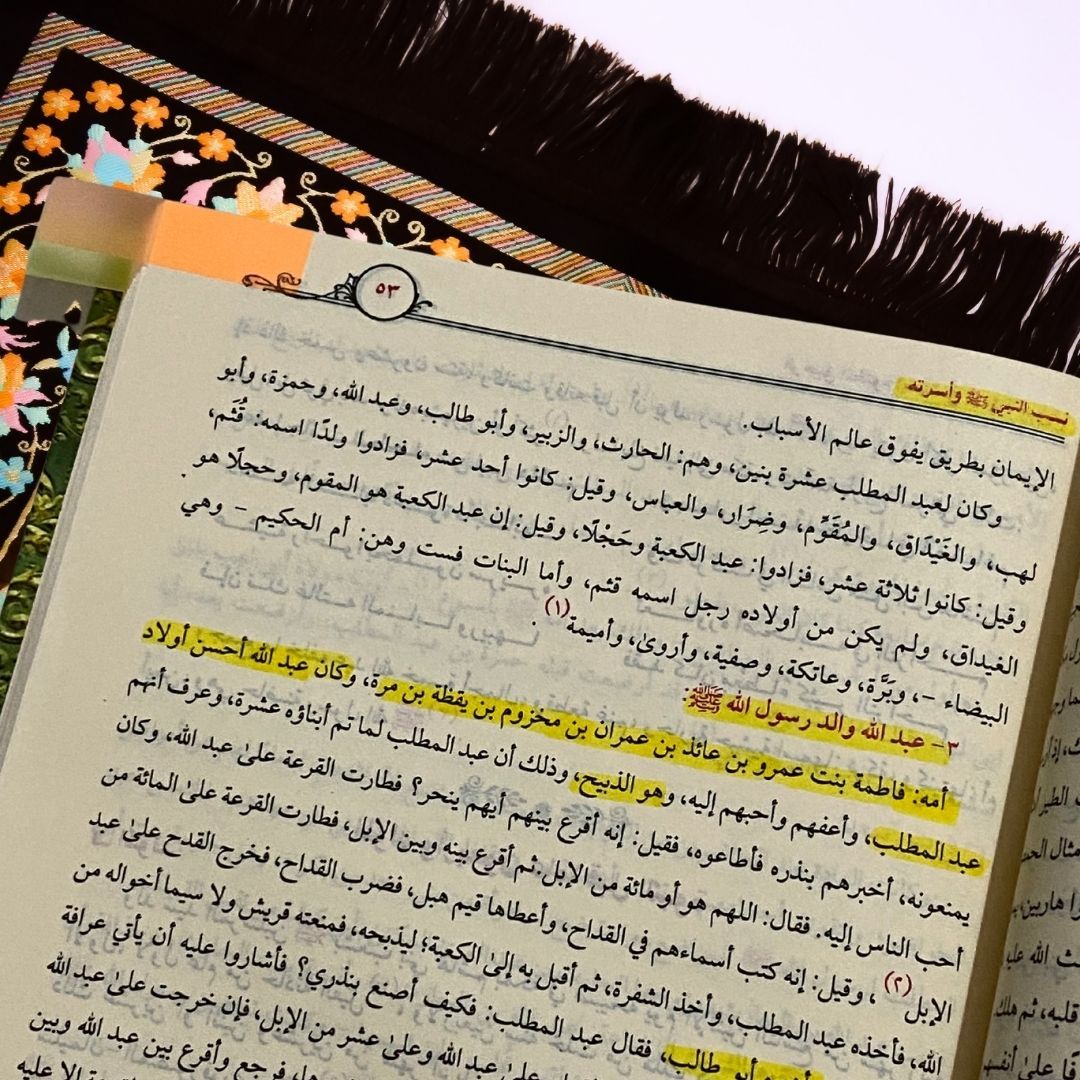 ٥٣
نسب النبي ﷺ وأسرته
الإيمان بطريق يفوق عالم الأسباب.
وكان لعبد المطلب عشرة بنين، وهم: الحارث، والزبير، وأبو طالب، وعبد الله، وحمزة، وأبو
لهب، والغَيْدَاق، والمُقَوِّم، وضِرَار، والعباس، وقيل: كانوا أحد عشر، فزادوا ولدًا اسمه: قُثَم،
وقيل: كانوا ثلاثة عشر، فزادوا: عبد الكعبة وحَجْلًا، وقيل: إن عبد الكعبة هو المقوم، وحجلًا هو
الغيداق، ولم يكن من أولاده رجل اسمه قثم، وأما البنات فست وهن: أم الحكيم - وهي
البيضاء -، وبَرَّة، وعاتكة، وصفية، وأروىٰ، وأميمة(١).
٣- عبد الله والد رسول الله ﷺ:
أمه: فاطمة بنت عمرو بن عائذ بن عمران بن مخزوم بن يقظة بن مرة، وكان عبد الله أحسن أولاد
عبد المطلب، وأعفهم وأحبهم إليه، وهو الذبيح، وذلك أن عبد المطلب لما تم أبناؤه عشرة، وعرف أنهم
يمنعونه، أخبرهم بنذره فأطاعوه، فقيل: إنه أقرع بينهم أيهم ينحر؟ فطارت القرعة علىٰ عبد الله، وكان
أحب الناس إليه. فقال: اللهم هو أو مائة من الإبل. ثم أقرع بينه وبين الإبل، فطارت القرعة علىٰ المائة من
الإبل(٢)، وقيل: إنه كتب أسماءهم في القداح، وأعطاها قيم هبل، فضرب القداح، فخرج القدح علىٰ عبد
الله، فأخذه عبد المطلب، وأخذ الشفرة، ثم أقبل به إلىٰ الكعبة؛ ليذبحه، فمنعته قريش ولا سيما أخواله من
أبو طالب، فقال عبد المطلب: فكيف أصنع بنذري؟ فأشاروا عليه أن يأتي عرافة
علىٰ عبد الله وعلىٰ عشر من الإبل، فإن خرجت علىٰ عبد الله
فرجع وأقرع بين عبد الله وبين